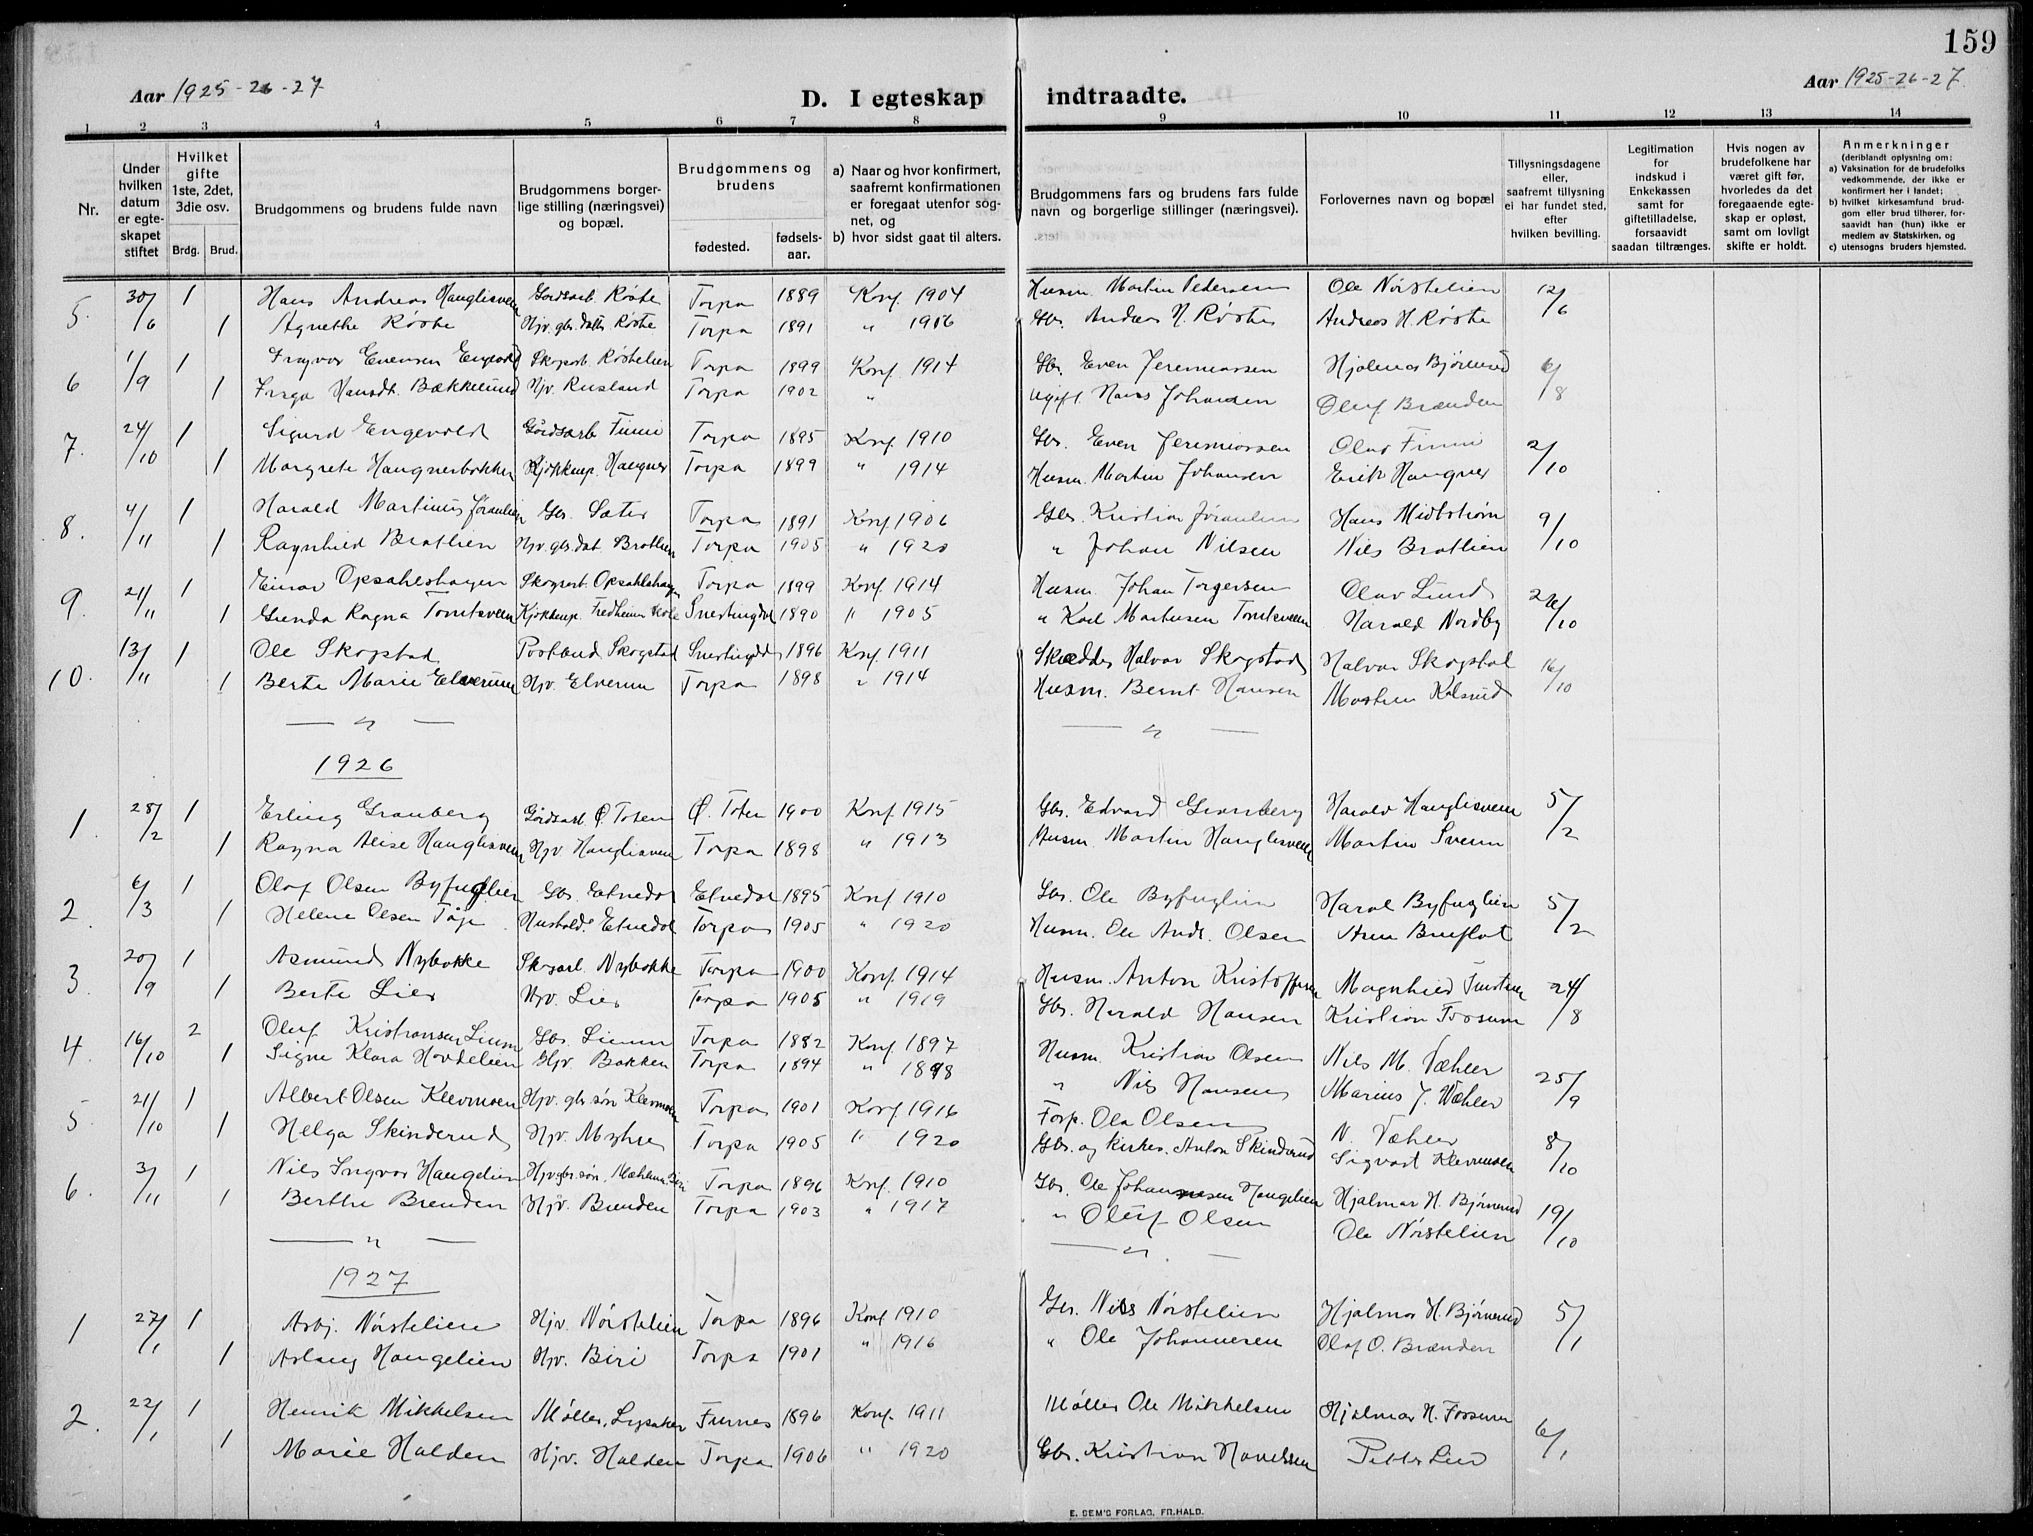 159
Aar 1925-26-27
D. I egteskap indtraadte.
Aar 1925-26-27
1 2 3 4 5 6 7 8 9 10 11 12 13 14
Nr.
Under hvilken datum er egteskapet stiftet
Hvilket gifte 1ste, 2det, 3die osv.
Brdg. Brud.
Brudgommens og brudens fulde navn
Brudgommens borgerlige stilling (næringsvei) og bopæl.
Brudgommens og brudens
fødested. fødselsaar.
a) Naar og hvor konfirmert, saafremt konfirmationen er foregaat utenfor sognet, og
b) hvor sidst gaat til alters.
Brudgommens fars og brudens fars fulde navn og borgerlige stillinger (næringsvei).
Forlovernes navn og bopæl
Tillysningsdagene eller, saafremt tillysning ei har fundet sted, efter hvilken bevilling.
Legitimation for indskud i Enkekassen samt for giftetilladelse, forsaavidt saadan tiltrænges.
Hvis nogen av brudefolkene har været gift før, hvorledes da det foregaaende egteskap er opløst, samt om lovligt skifte er holdt.
Anmerkninger
(deriblandt oplysning om:
a) Vaksination for de brudefolks vedkommende, der ikke er konfirmert her i landet;
b) hvilket kirkesamfund brudgom eller brud tilhører, forsaavidt han (hun) ikke er medlem av Statskirken, og
c) utensogns bruders hjemsted.
5. 30/6 1 Hans Andreas Hauglisveen Gårdsarb. Røste Torpa 1889 Konf. 1904 Husm. Martin Pedersen Ole Nørstelien 12/6
1 Agnethe Røste Hjv. gbr. datt. Røste Torpa 1891 " 1906 Gbr. Anders H. Røste Andreas H. Røste
6 1/9 1 Ingvar Evensen Engevold Skogsarb. Røstelien Torpa 1899 Konf. 1914 Gbr. Even Jeremiassen Hjalmar Bjørnerud 6/8
1 Inga Hansdt. Bækkelund Hjv. Rusland Torpa 1902 " Ugift. Hans Johansen Oluf Brænden
7. 24/10 1 Sigurd Engevold Gårdsarb Finni Torpa 1895 Konf. 1910 Gbr. Even Jeremiassen Olav Finni 2/10
1 Margrete Haugnerbakken Kjøkkenp. Haugner Torpa 1899 " 1914 Husm. Martin Johansen Erik Haugner
8. 4/11 1 Harald Martinius Jøranlien Gbr. Sæter Torpa 1891 Konf. 1906 Gbr. Kristian Jøranlien Hans Midtstrøm 9/10
1 Ragnhild Bratlien Hjv. gbr. dat Bratlien Torpa 1905 " 1920 " Johan Nilsen Nils Bratlien
9. 21/11 1 Einar Opsahlshagen Skogsarb Opsahlshagen Torpa 1899 Konf. 1914 Husm. Johan Torgersen Olav Lund 10
1 Gunda Ragna Tomtsveen Kjøkkenp. Fredheim skole Snertingdal 1890 " 1905 " Karl Martinsen Tomtsveen Harald Nordby
10. 13/11 1 Ole Skogstad Postbud Skogstad Snertingdal 1896 Konf. 1911 Skrædder Halvor Skogstad Halvor Skogstad 16/10
1 Berte Marie Elverum Hjv. Elverum Torpa 1898 " 1914 Husm. Bernt Hansen Martin Kolsrud
— " —
1926
1. 28/2 1 Erling Granberg Gårdsarb Ø. Toten Ø. Toten 1900 Konf. 1915 Gbr. Edvard Granberg Harald Hauglisveen 5/2
1 Ragna Alise Hauglisveen Hjv. Hauglisveen Torpa 1898 " 1913 Husm. Martin Hauglisveen Martin Sveum
2. 6/3 1 Olaf Olsen Byfuglien Gbr. Etnedal Etnedal 1895 Konf 1910 Gbr. Ole Byfuglien Harald Byfuglien 5/2
1 Helene Olsen Tåje Hushold. Etnedal Torpa 1905 " 1920 Husm. Ole Andr. Olsen Arne Bruflat
3. 20/9 1 Asmund Nybakke Skogsarb. Nybakke Torpa 1900 Konf. 1914 Husm. Anton Kristoffersen Magnhild 24/8
1 Berte Lier Hjv. Lier Torpa 1905 " 1919 Gbr. Harald Hansen Kristian Fossum
4. 16/10 2 Oluf Kristiansen Lium Gbr. Lium Torpa 1882 Konf. 1897 Husm. Kristian Olsen Nils M. Væhler 25/9
1 Signe Klara Hovdelien Hjv. Bakken Torpa 1894 " " Nils Hansen Marius J. Wæhler
5. 21/10 1 Albert Olsen Klevmoen Hjv. gbr. søn Klevmoen Torpa 1901 Konf. 1916 Forp. Ola Olsen N. Væhler 8/10
1 Helga Skinderud Hjv. Myhre Torpa 1905 " 1920 Gbr. og kirkes. Anton Skinderud Sigvart Klevmoen
6. 3/11 1 Nils Ingvar Haugelien Hjv. gbr. søn. Torpa 1896 Konf. 1910 Gbr. Ole Johannesen Haugelien Hjalmar H. Bjørnerud 19/10
1 Berthe Brenden Hjv. Brenden Torpa 1903 " 1917 " Oluf Olsen Ole Nørstelien
— " —
1927
1 27/1 1 Asbj. Nørstelien Hjv. Nørstelien Torpa 1896 Konf 1910 Gbr. Nils Nørstelien Hjalmar H. Bjørnerud 5/1
1 Aslaug Haugelien Hjv. Biri Torpa 1901 " 1916 " Ole Johannesen Olaf O. Brænden
2. 22/1 1 Henrik Mikkelsen Møller, Lysaker Furnes 1896 Konf. 1911 Møller Ole Mikkelsen Hjalmar H. Fossum 6/1
1 Marie Halden Hjv. Halden Torpa 1906 " 1920 Gbr. Kristian Havelsen Petter Lien
E. SEM'S FORLAG, FR.HALD.